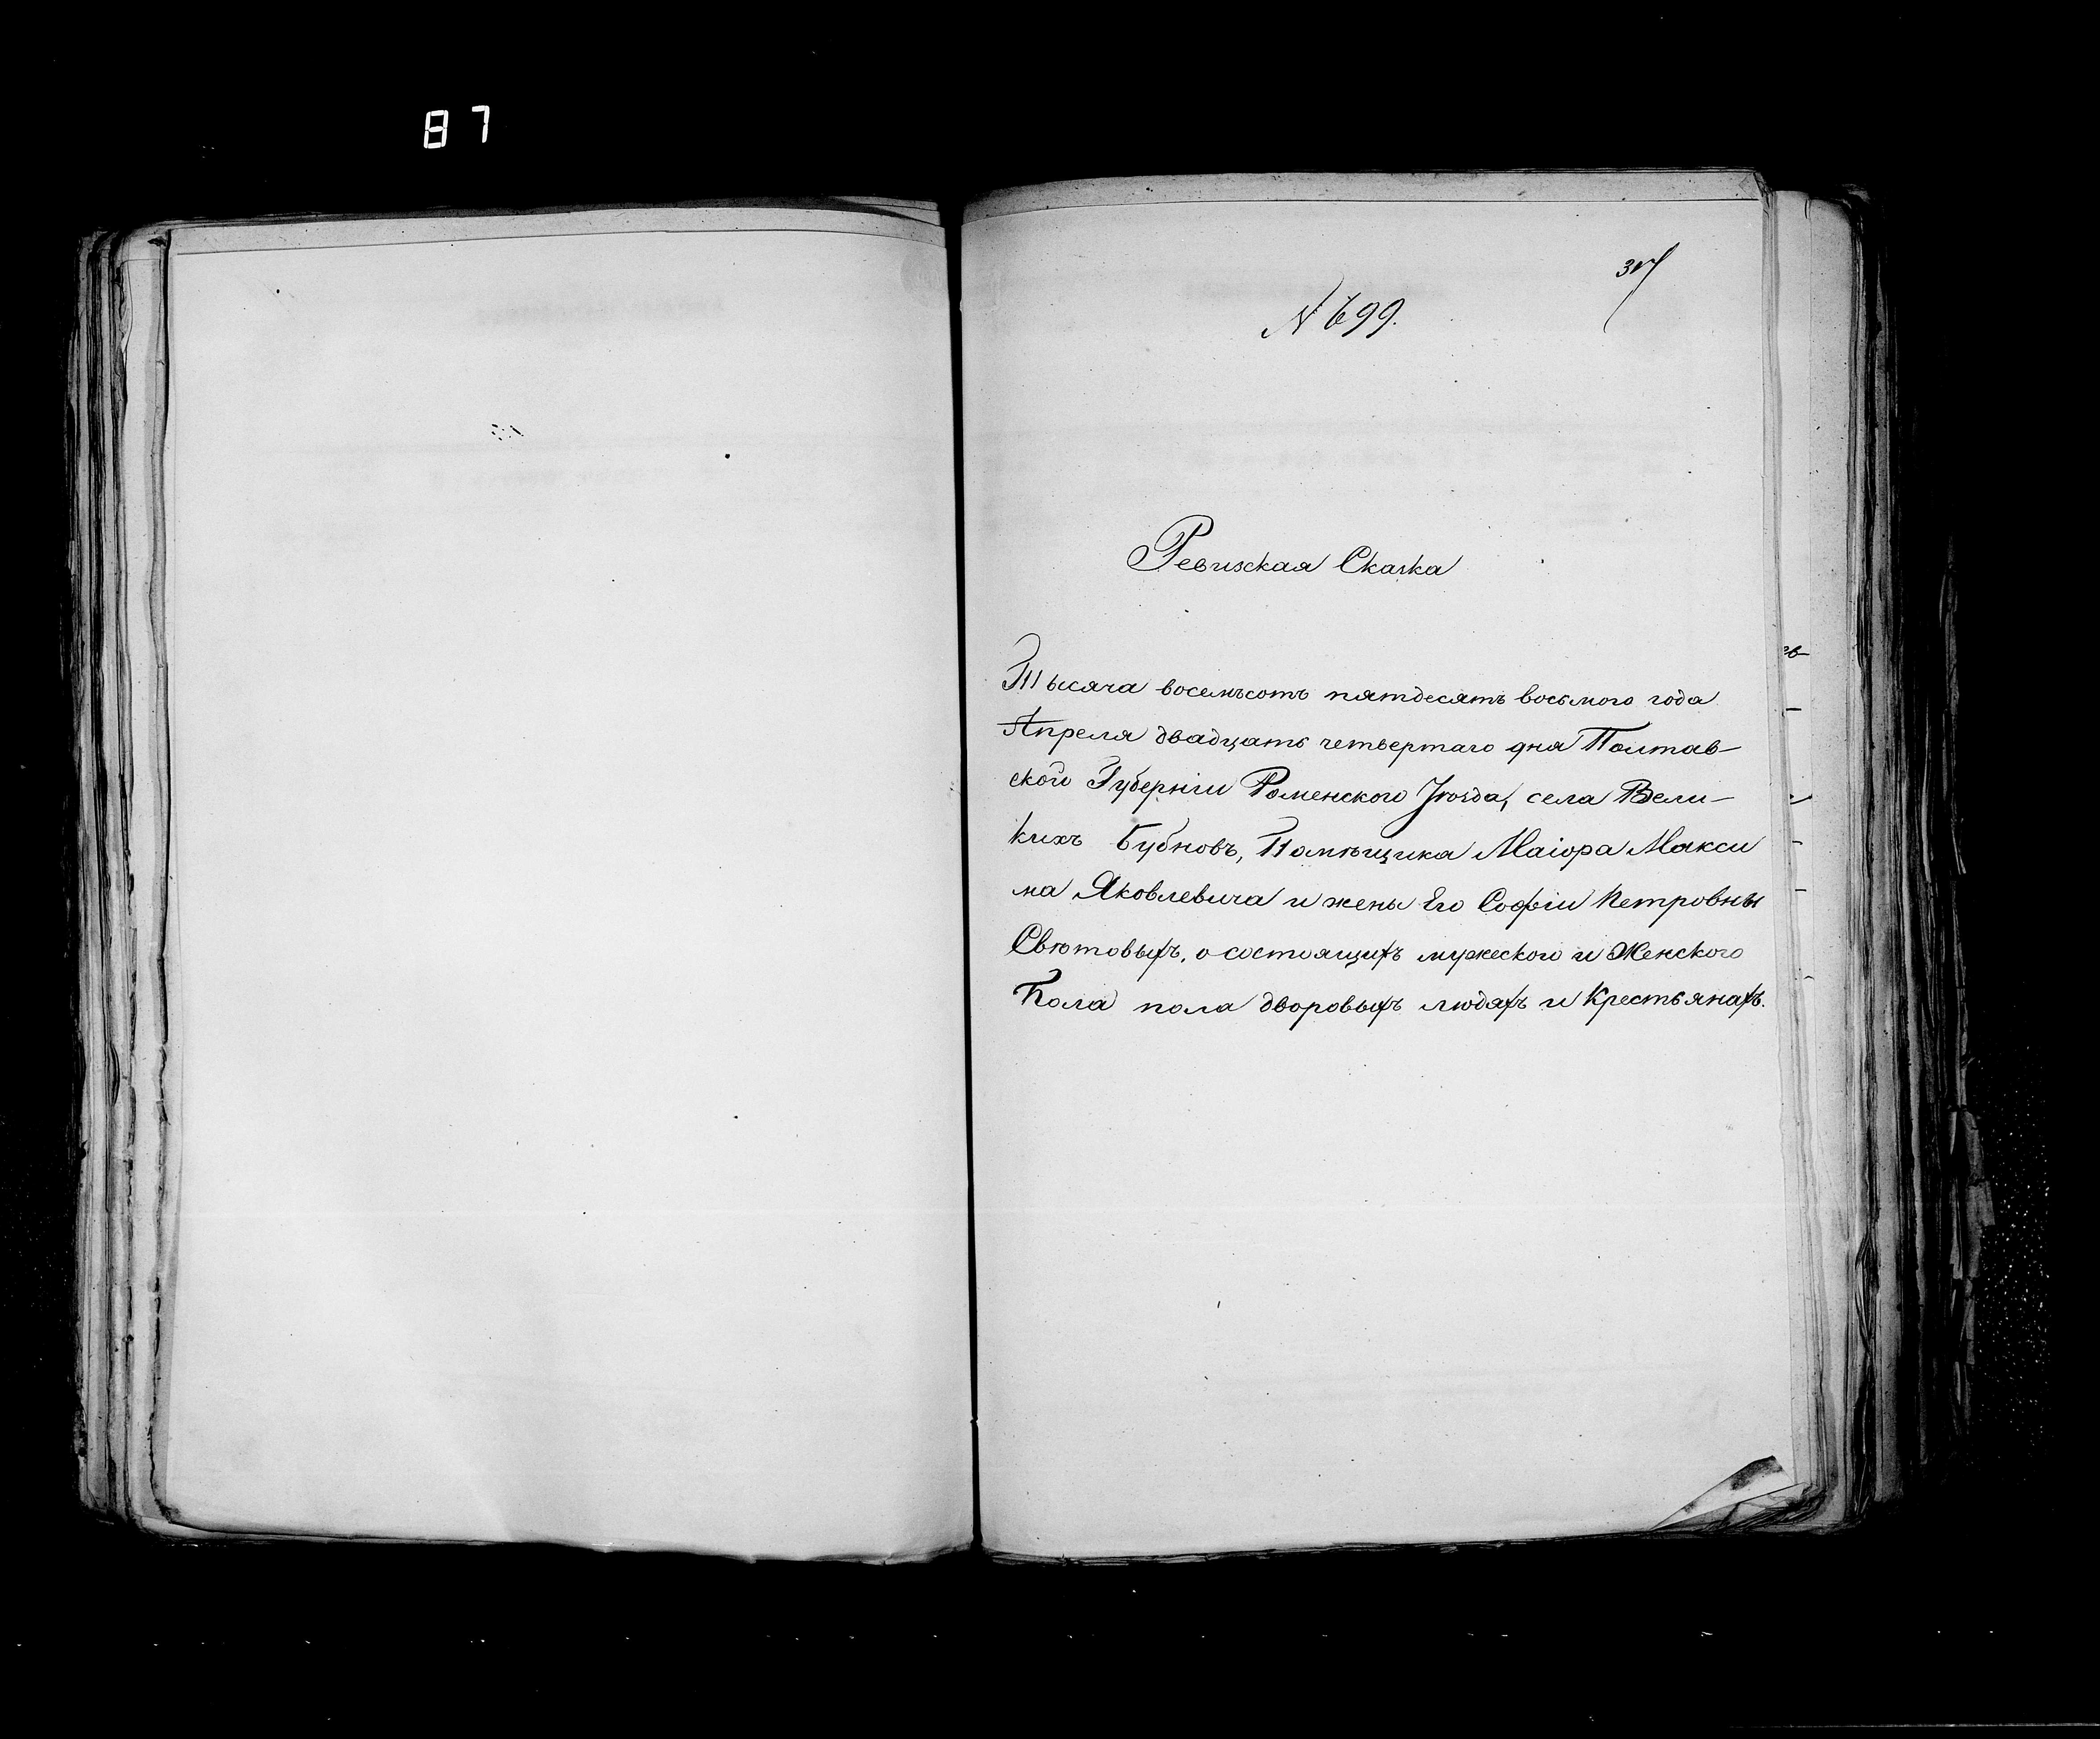 87
317
№ 699.
Ревизская Сказка
Тысяча восемьсотъ пятдесятъ восьмого года
Апреля двадцать четвертаго дня Полтав-
ской Губерніи Роменского Уѣзда, села Вели-
кихъ Бубновъ, Помѣщика Маіора Макси
ма Яковлевича и жены Его Софіи Петровны
Свѣтовыхъ, о состоящихъ мужеского и Женского
Пола пола дворовыхъ людяхъ и Крестьянахъ.